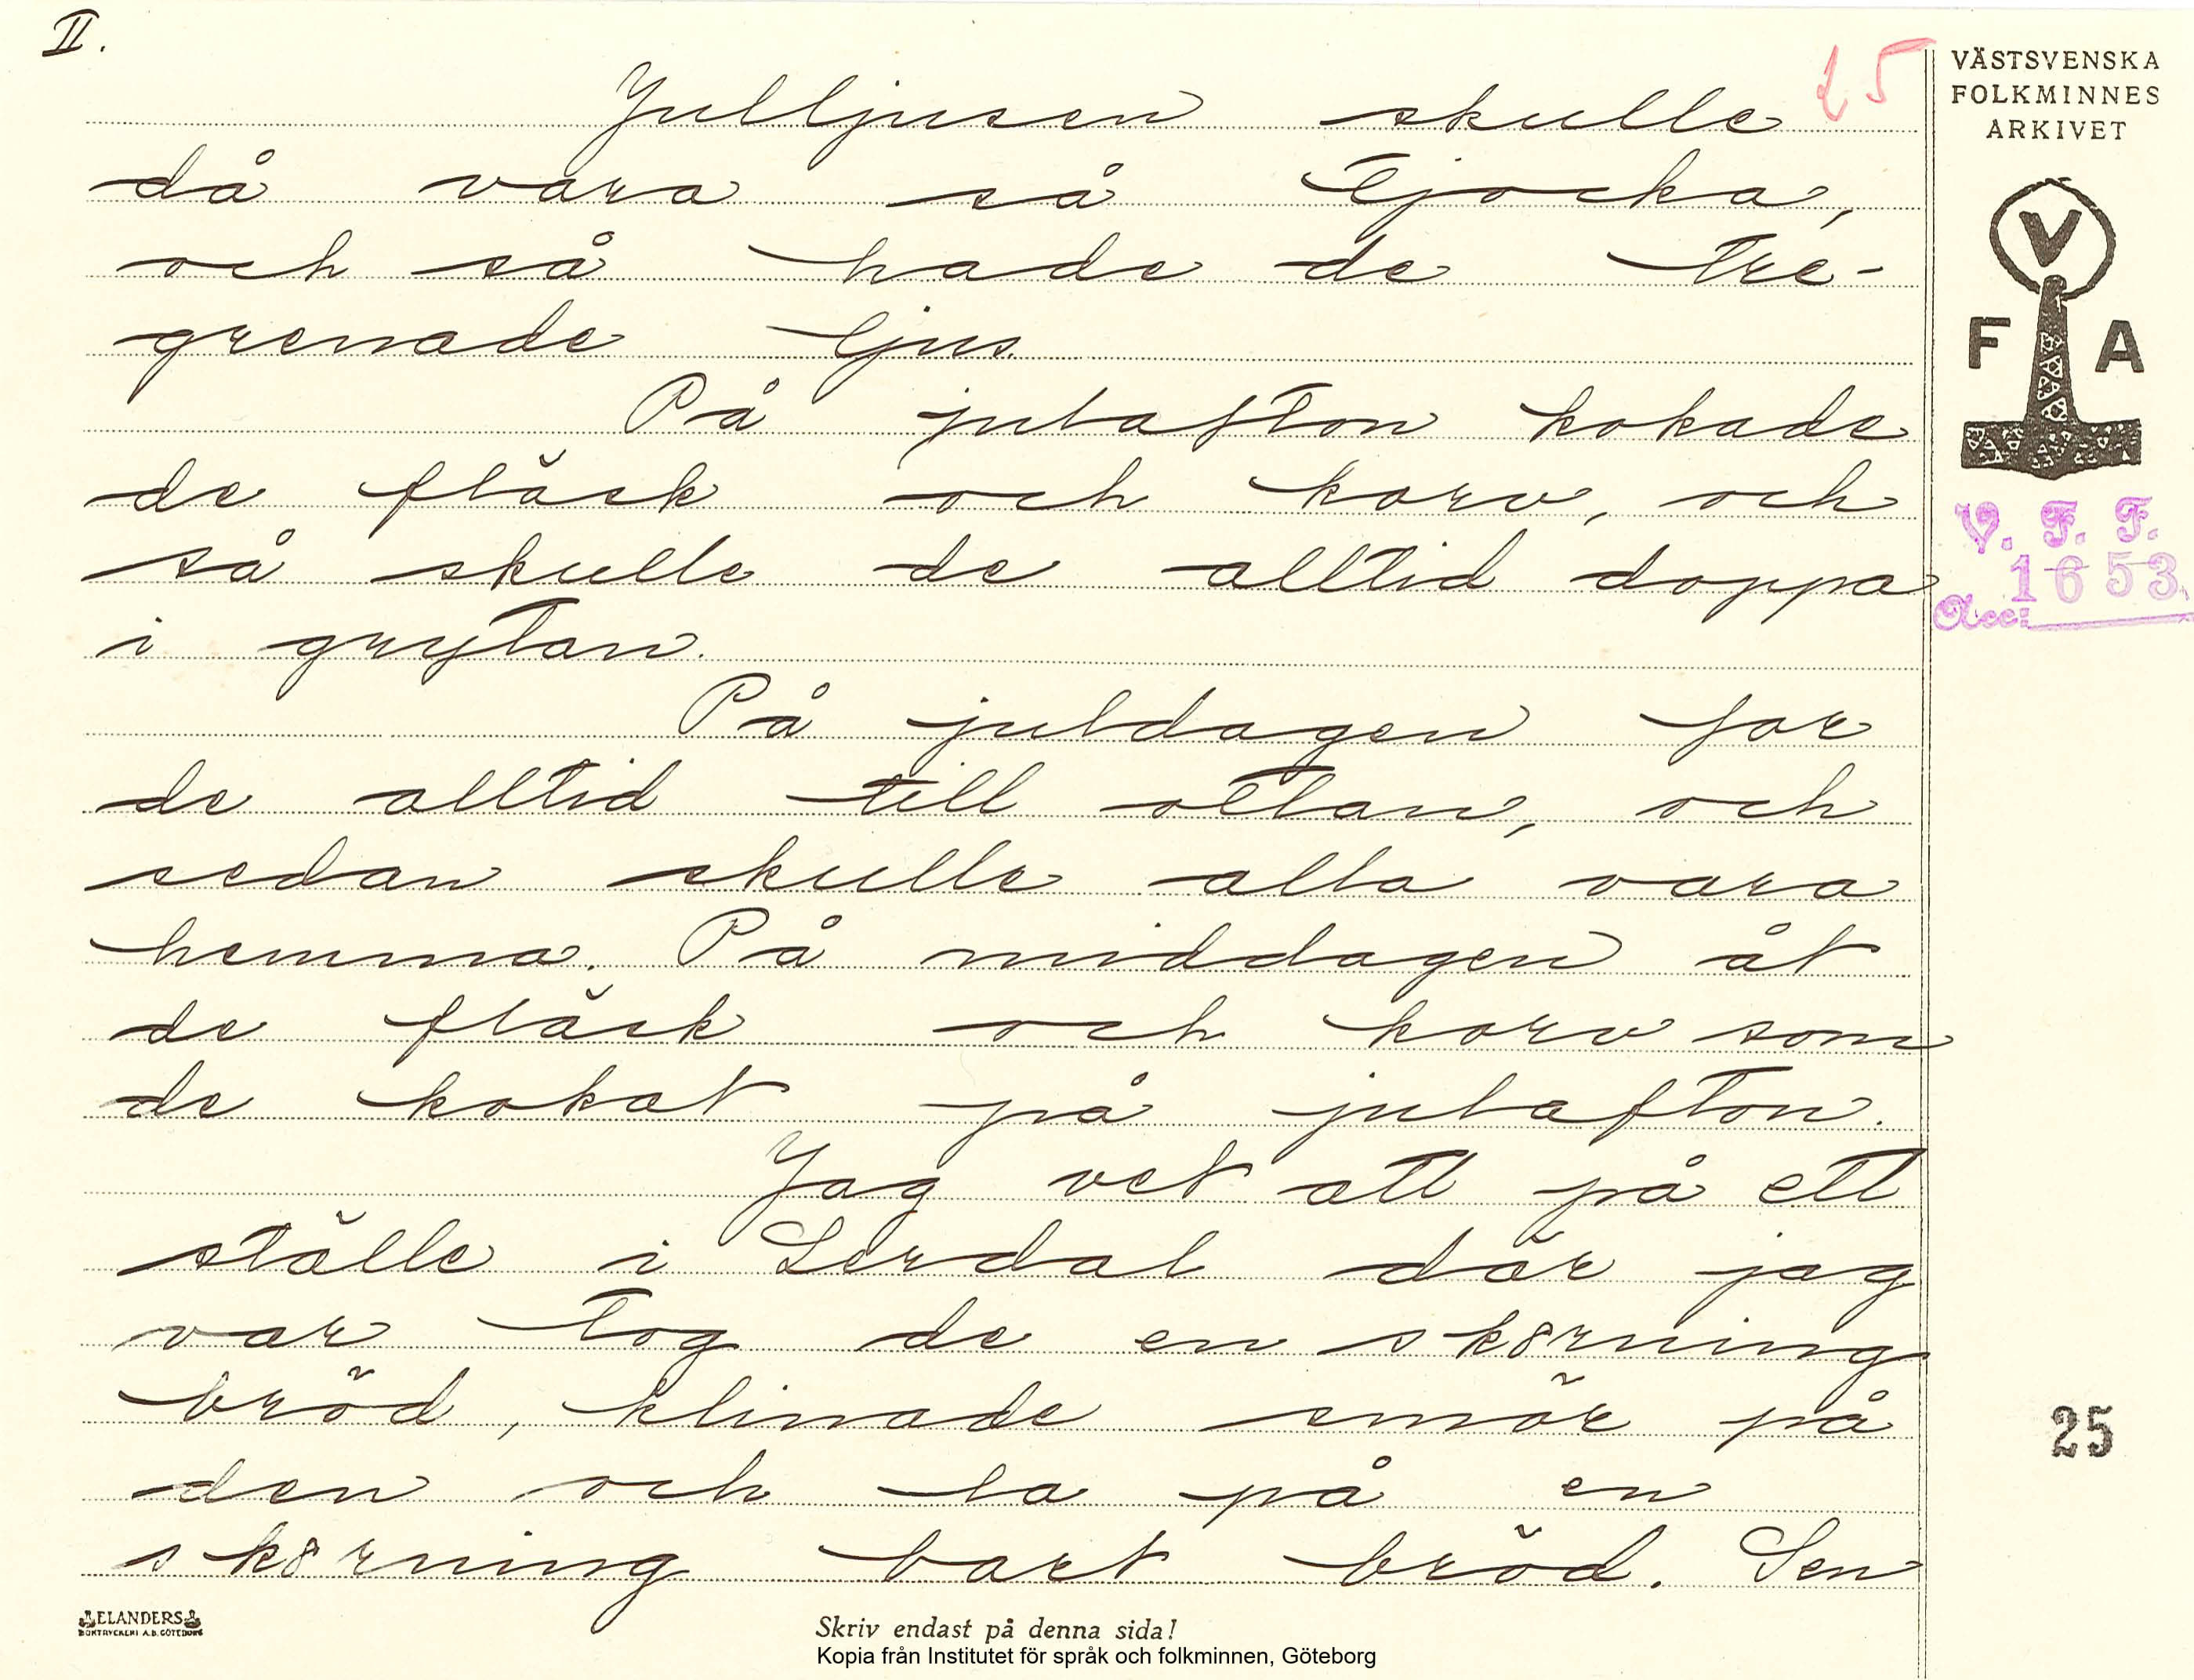 II.
25
VÄSTSVENSKA
FOLKMINNES
ARKIVET
V
F A
V. F. F.
1653.
Acc:
Julljusen skulle
då vara så tjocka,
och så hade de tre-
grenade ljus.
På julafton kokade
de fläsk och korv, och
så skulle de alltid doppa
i grytan.
På juldagen for
de alltid till ottan, och
sedan skulle alla vara
hemma. På middagen åt
de fläsk och korv som
de kokat på julafton.
Jag vet att på ett
ställe i Lerdal där jag
var tog de en sk8rning
bröd, klinade smör på
den och la på en
sk8rning bart bröd. Sen
25
ELANDERS
BOKTRYCKERI A.B. GÖTEBORG
Skriv endast på denna sida!
Kopia från Institutet för språk och folkminnen, Göteborg